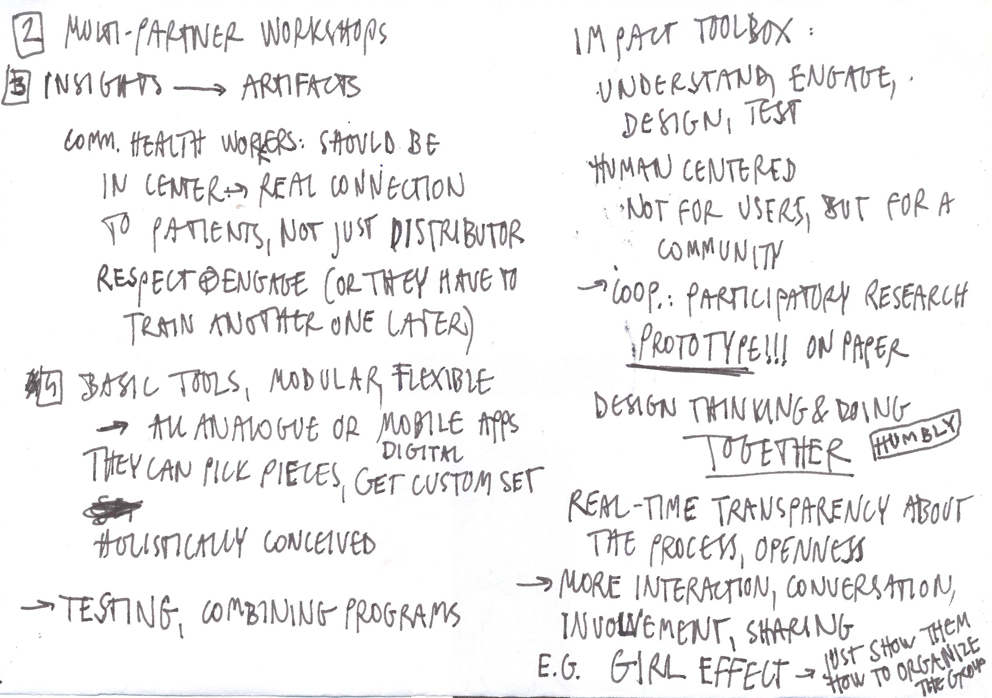 2 MULTI-PARTNER WORKSHOPS
3 INSIGHTS → ARTIFACTS
COMM. HEALTH WORKERS: SHOULD BE
IN CENTER → REAL CONNECTION
TO PATIENTS, NOT JUST DISTRIBUTOR
RESPECT ⊕ ENGAGE (OR THEY HAVE TO
TRAIN ANOTHER ONE LATER)
BASIC TOOLS, MODULAR, FLEXIBLE
→ ALL ANALOGUE OR MOBILE APPS
DIGITAL
THEY CAN PICK PIECES, GET CUSTOM SET
HOLISTICALLY CONCEIVED
→ TESTING, COMBINING PROGRAMS
IMPACT TOOLBOX:
UNDERSTAND, ENGAGE,
DESIGN, TEST
HUMAN CENTERED
NOT FOR USERS, BUT FOR A
COMMUNITY
→ COOP.: PARTICIPATORY RESEARCH
PROTOTYPE!!! ON PAPER
DESIGN THINKING & DOING
TOGETHER HUMBLY
REAL-TIME TRANSPARENCY ABOUT
THE PROCESS, OPENNESS
→ MORE INTERACTION, CONVERSATION,
INVOLVEMENT, SHARING
E.G. GIRL EFFECT → JUST SHOW THEM
HOW TO ORGANIZE
THE GROUP